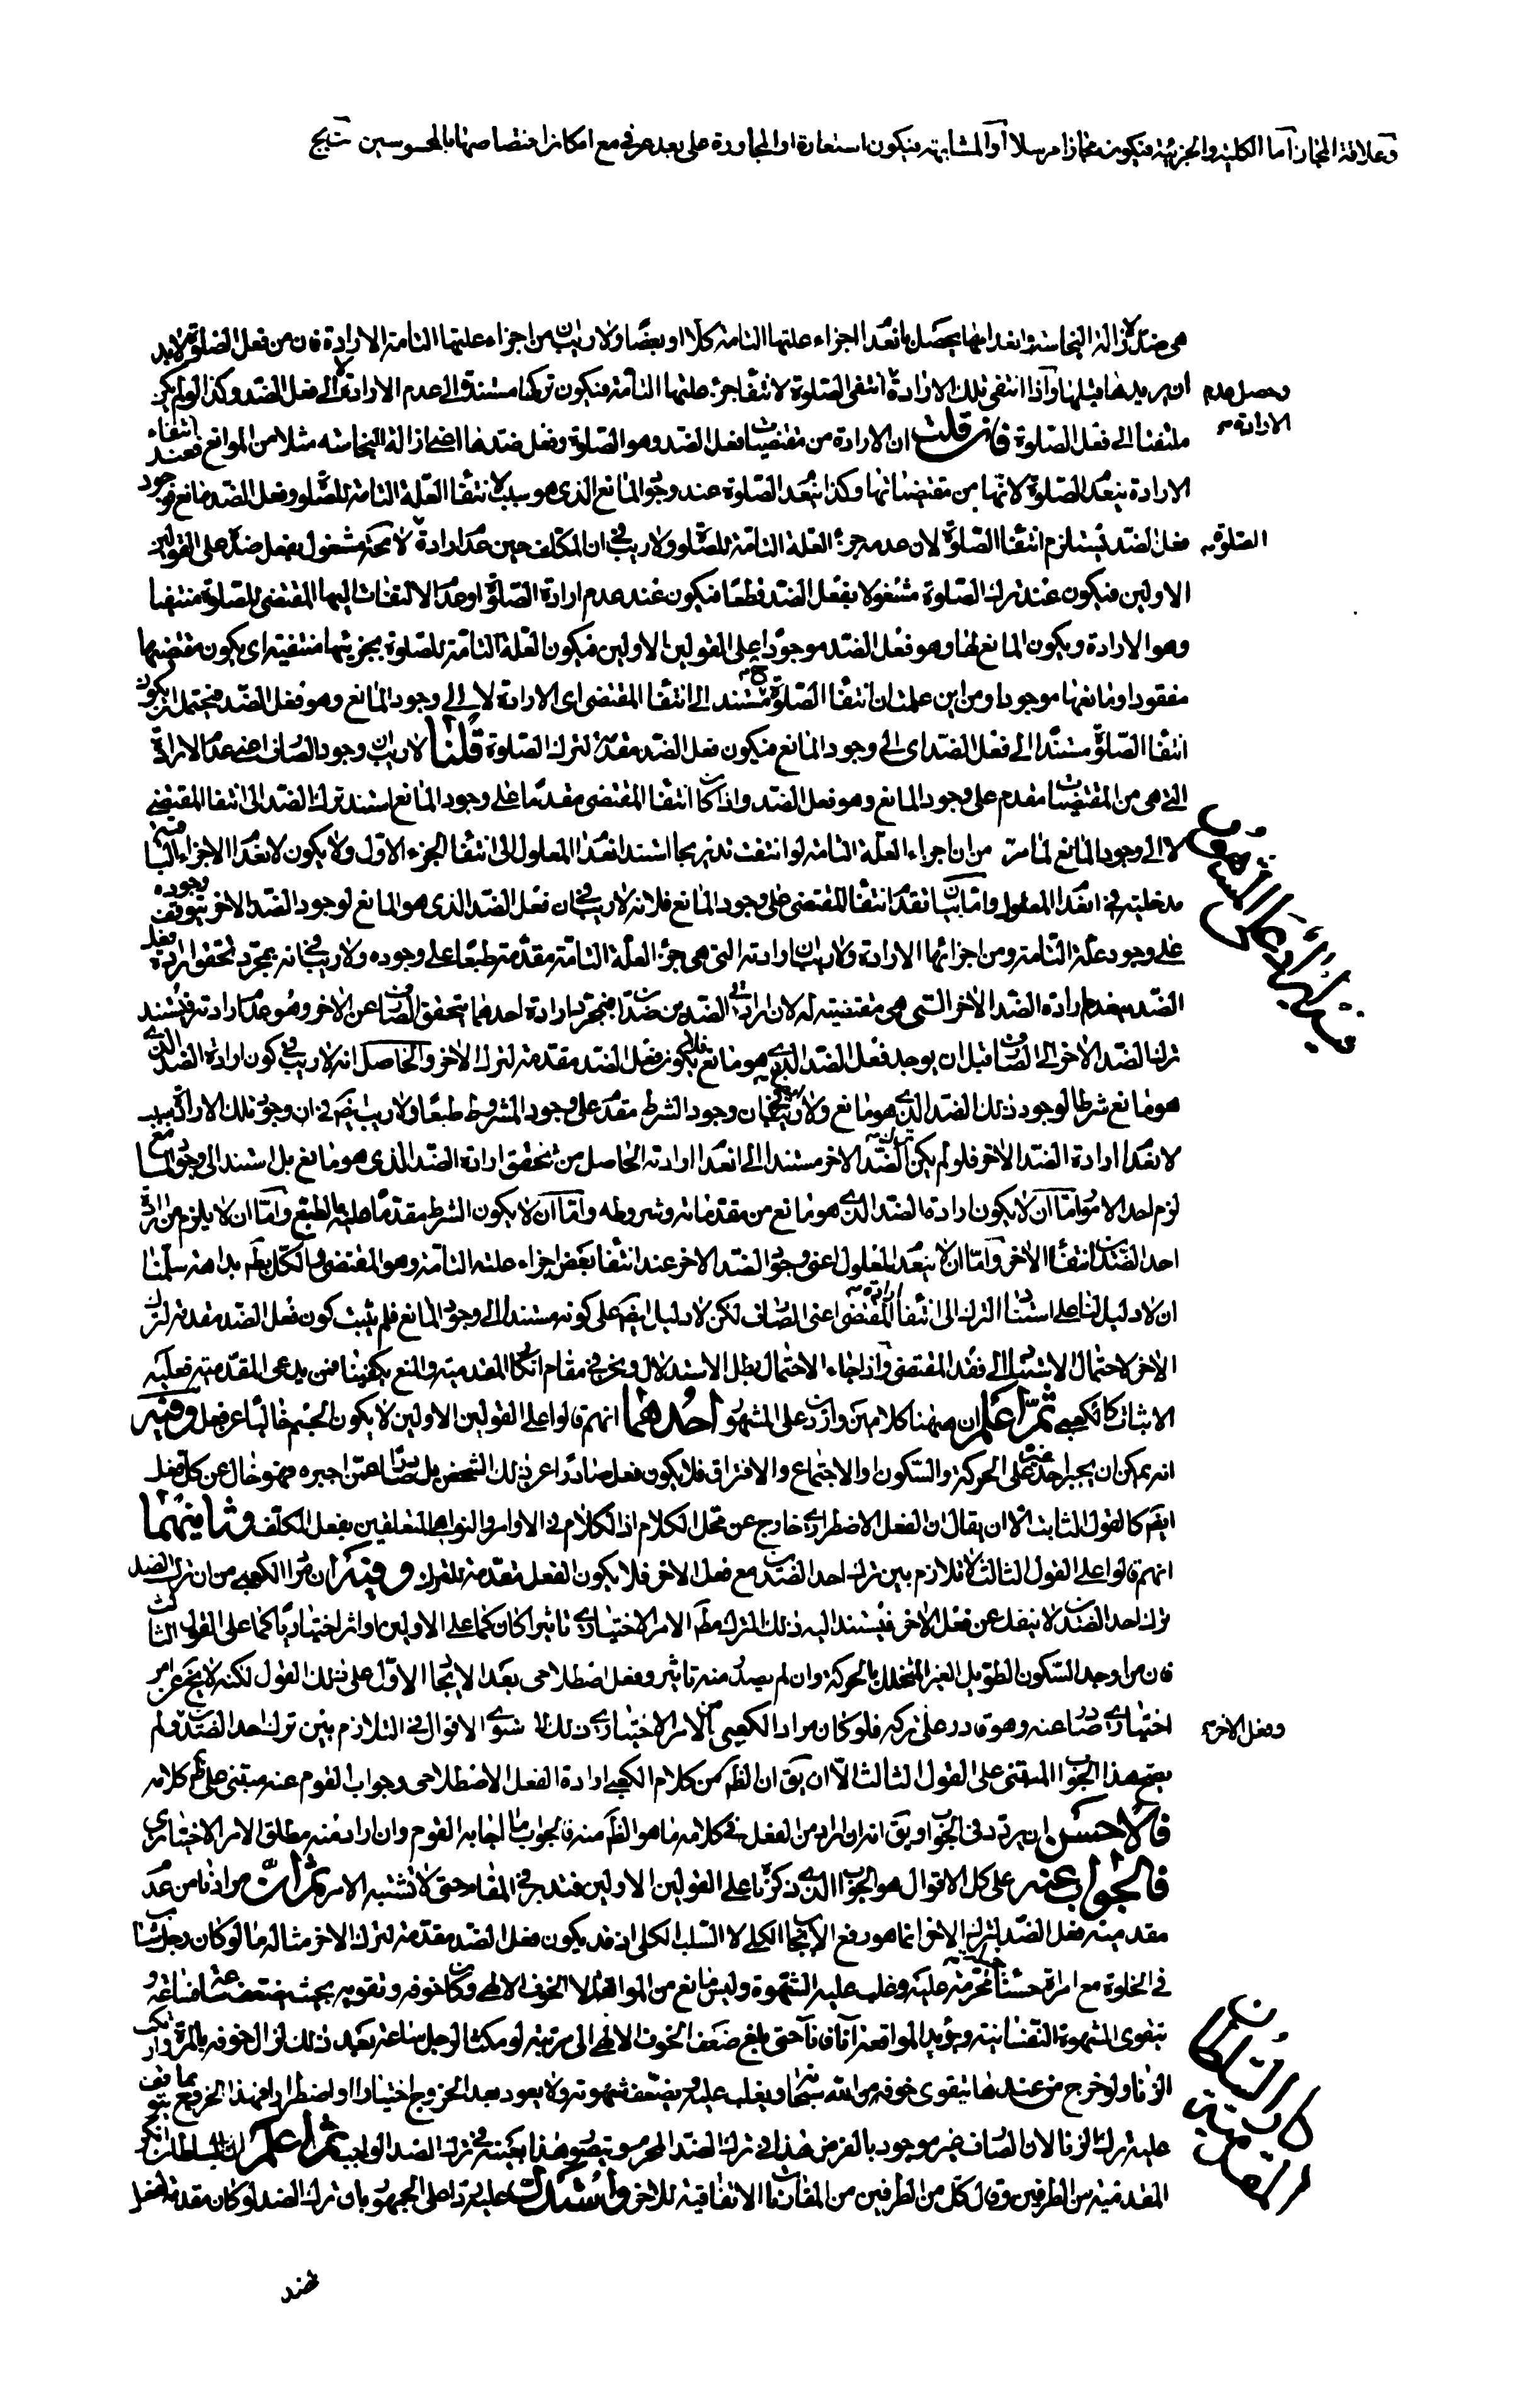 وعلاقة المجاز اما الكلية والجزئية فيكون مجازا مرسلا او المشابهة فيكون استعارة او المجاورة على بعد عرفى مع امكان اختصاصها بالمحسوسين
هى ضد لازالة النجاسة وانعدامها يحصل بانعدا اجزاء علتها التامة كلا او بعضا ولا ريب ان من اجزاء علتها التامة الارادة فان من فعل الصلوة لا بد
ان يريدها قبلها واذا انتفى تلك الارادة انتفى الصلوة لانتفا جزء علتها التامة فيكون تركها مستندة الى عدم الارادة لا الى فعل الضد وكذا لو لم يكن
وحصل عدم الارادة
ملتفتا الى فعل الصلوة فان قلت ان الارادة من مقتضيات فعل الضد وهو الصلوة وفعل ضدها اعنى ازالة النجاسة مثلا من الموانع فعند انتفاء
الارادة ينعدم الصلوة لانها من مقتضياتها وكذا ينعدم الصلوة عند وجود المانع الذى هو سبب لانتفا العلة التامة للصلوة وفعل الضد مانع فوجود
فعل الضد يستلزم انتفا الصلوة لان عدمه جزء العلة التامة للصلوة ولا ريب فى ان المكلف حين عدم ارادة مشغول بفعل ضد على القولين
الصلوة
الاولين فيكون عند ترك الصلوة مشغولا بفعل الضد قطعا فيكون عند عدم ارادة الصلوة او عدم الالتفات اليها المقتضى للصلوة منتفيا
وهو الارادة ويكون المانع لها وهو فعل الضد موجودا على القولين الاولين فيكون العلة التامة للصلوة بجزئيها منتفية اى يكون مقتضيها
مفقودا ومانعها موجودا ومن اين علمت ان انتفا الصلوة ح مستند الى انتفا المقتضى اى الارادة لا الى وجود المانع وهو فعل الضد فيحتمل ان يكون
انتفا الصلوة مستندا الى فعل الضد اى الى وجود المانع فيكون فعل الضد مقدمة لترك الصلوة قلنا لا ريب ان وجود الصارف اعنى عدم الارادة
التى هى من المقتضيات مقدم على وجود المانع وهو فعل الضد واذا كان انتفا المقتضى مقدما على وجود المانع استند ترك الضد الى انتفا المقتضى
لا الى وجود المانع لما مر من ان اجزاء العلة التامة لو انتفت تدريجا استند انعدام المعلول الى انتفا الجزء الاول ولا يكون لانعدام الاجزاء الباقية
مدخلية فى انعدام المعلول واما بيان تقدم انتفا المقتضى على وجود المانع فلانه لا ريب فى ان فعل الضد الذى هو المانع لوجود الضد الاخر يتوقف وجوده
على وجود علته التامة ومن اجزائها الارادة ولا ريب ان ارادته التى هى جزء العلة التامة مقدمة طبعا على وجوده ولا ريب فى انه بمجرد تحقق ارادة فعل
الضد ينعدم ارادة الضد الاخر التى هى مقتضية له لان ارادتى الضدين ضدان فبمجرد ارادة احدهما يتحقق الصارف عن الاخر وهو عدم ارادته فيستند
ترك الضد الاخر الى الصارف قبل ان يوجد فعل الضد الذى هو مانع فلا يكون فعل الضد مقدمة لترك الاخر والحاصل انه لا ريب فى كون ارادة الضد الذى
هو مانع شرطا لوجود ذلك الضد الذى هو مانع ولا ريب فى ان وجود الشرط مقدم على وجود المشروط طبعا ولا ريب ايضا فى ان وجود تلك الارادة سبب
لانعدام ارادة الضد الاخر فلو لم يكن ترك الضد الاخر مستندا الى انعدام ارادته الحاصل من تحقق ارادة الضد الذى هو مانع بل استند الى وجود المانع
لزم احد الامور اما ان لا يكون ارادة الضد الذى هو مانع من مقدماته وشروطه واما ان لا يكون الشرط مقدما عليه بالطبع واما ان لا يلزم من ارادة
احد الضدين انتفا الاخر واما ان لا ينعدم المعلول اعنى وجود الضد الاخر عند انتفا بعض اجزاء علته التامة وهو المقتضى والكل بط بداهة سلمنا
ان لا دليل لنا على استناد الترك الى انتفا المقتضى اعنى الصارف لكن لا دليل ايضا على كونه مستندا الى وجود المانع فلم يثبت كون فعل الضد مقدمة لترك
الاخر لاحتمال الاستناد الى فقد المقتضى واذا جاء الاحتمال بطل الاستدلال ونحن فى مقام انكار المقدمية والمنع يكفينا فمن يدعى المقدمية فعليه
الاثبات كالكعبى ثم اعلم ان هيهنا كلامين واردين على المشهور احدهما انهم قالوا على القولين الاولين لا يكون الجسم خاليا عن فعل وفيه
انه يمكن ان يجبر احد غيره على الحركة والسكون او الاجتماع والافتراق فلا يكون فعل صادرا عن ذلك الشخص بل صادرا عمن اجبره فهو خال عن كل فعل
ايضا كالقول الثالث الا ان يقال ان الفعل الاضطرارى خارج عن محل الكلام اذ الكلام فى الاوامر والنواهى المتعلقين بفعل المكلف وثانيهما
انهم قالوا على القول الثالث لا تلازم بين ترك احد الضدين مع فعل الاخر فلا يكون الفعل مقدمة للترك وفيه ان مراد الكعبى من ان ترك الضد
ترك احد الضدين لا ينفك عن فعل الاخر فيستند اليه ذلك الترك مط الامر الاختيارى تاثيرا كان كما على الاولين او اثر اختياريا كما على القول الثالث
فان مراوحد السكون الطويل الغير المتخلل بالحركة وان لم يصدر منه تاثير وفعل اصطلاحى بعد الايجاد الاول على ذلك القول لكنه لا يخ عن امر
اختيارى صادر عنه وهو قادر على تركه فلو كان مراد الكعبى من الامر الاختيارى ذلك الاقوال فى التلازم بين ترك احد الضدين ولم
وفعل الاخر
يصح هذا الجواب المبتنى على القول الثالث الا ان يق ان الظ من كلام الكعبى ارادة الفعل الاصطلاحى وجواب القوم عنه مبتنى على ظ كلامه
فالاحسن ان يردد فى الجواب ويق انه ان اراد من الفعل فى كلامه ما هو الظ منه فالجواب ما اجابه القوم وان اراد منه مطلق الامر الاختيارى
فالجواب عنه على كل الاقوال هو الجواب الذى ذكرنا على القولين الاولين فتدبر فى المقام حتى لا تشتبه الامر ثم ان مرادنا من عدم
مقدمية فعل الضد لترك الاخر انما هو رفع الايجاب الكلى لا السلب الكلى اذ قد يكون فعل الضد مقدمة لترك الاخر مثاله ما لو كان رجل شاب
فى الخلوة مع امراة حسناء محرمة عليه وغلب عليه الشهوة وليس مانع من المواقعة الا الخوف الالهى وكان خوفه وتقويه بحيث يضعف ساعة فساعة و
يتقوى الشهوة النفسانية ويؤيد المواقعة انا فانا حتى بلغ ضعف الخوف الالهى الى مرتبة لو مكث الرجل ساعة بعد ذلك لزال خوفه بالمرة وارتكب
الزنا ولو خرج من عندها يتقوى خوفه من الله سبحانه ويغلب عليه ويضعف شهوته ولا يعود بعد الخروج اختيارا او اضطرارا فهذا الخروج مما يتوقف
عليه ترك الزنا لان الصارف غير موجود بالفرض هذا فى ترك الضد المحرم ويتصور هذا بعينه فى ترك الضد الواجب ثم اعلم ان السلطان انكر
المقدمية من الطرفين وقال كل من الطرفين من المقارنات الاتفاقية للاخر واستدل عليه ردا على الجمهور بان ترك الضد لو كان مقدمة لفعل
كلام السلطان
ضد